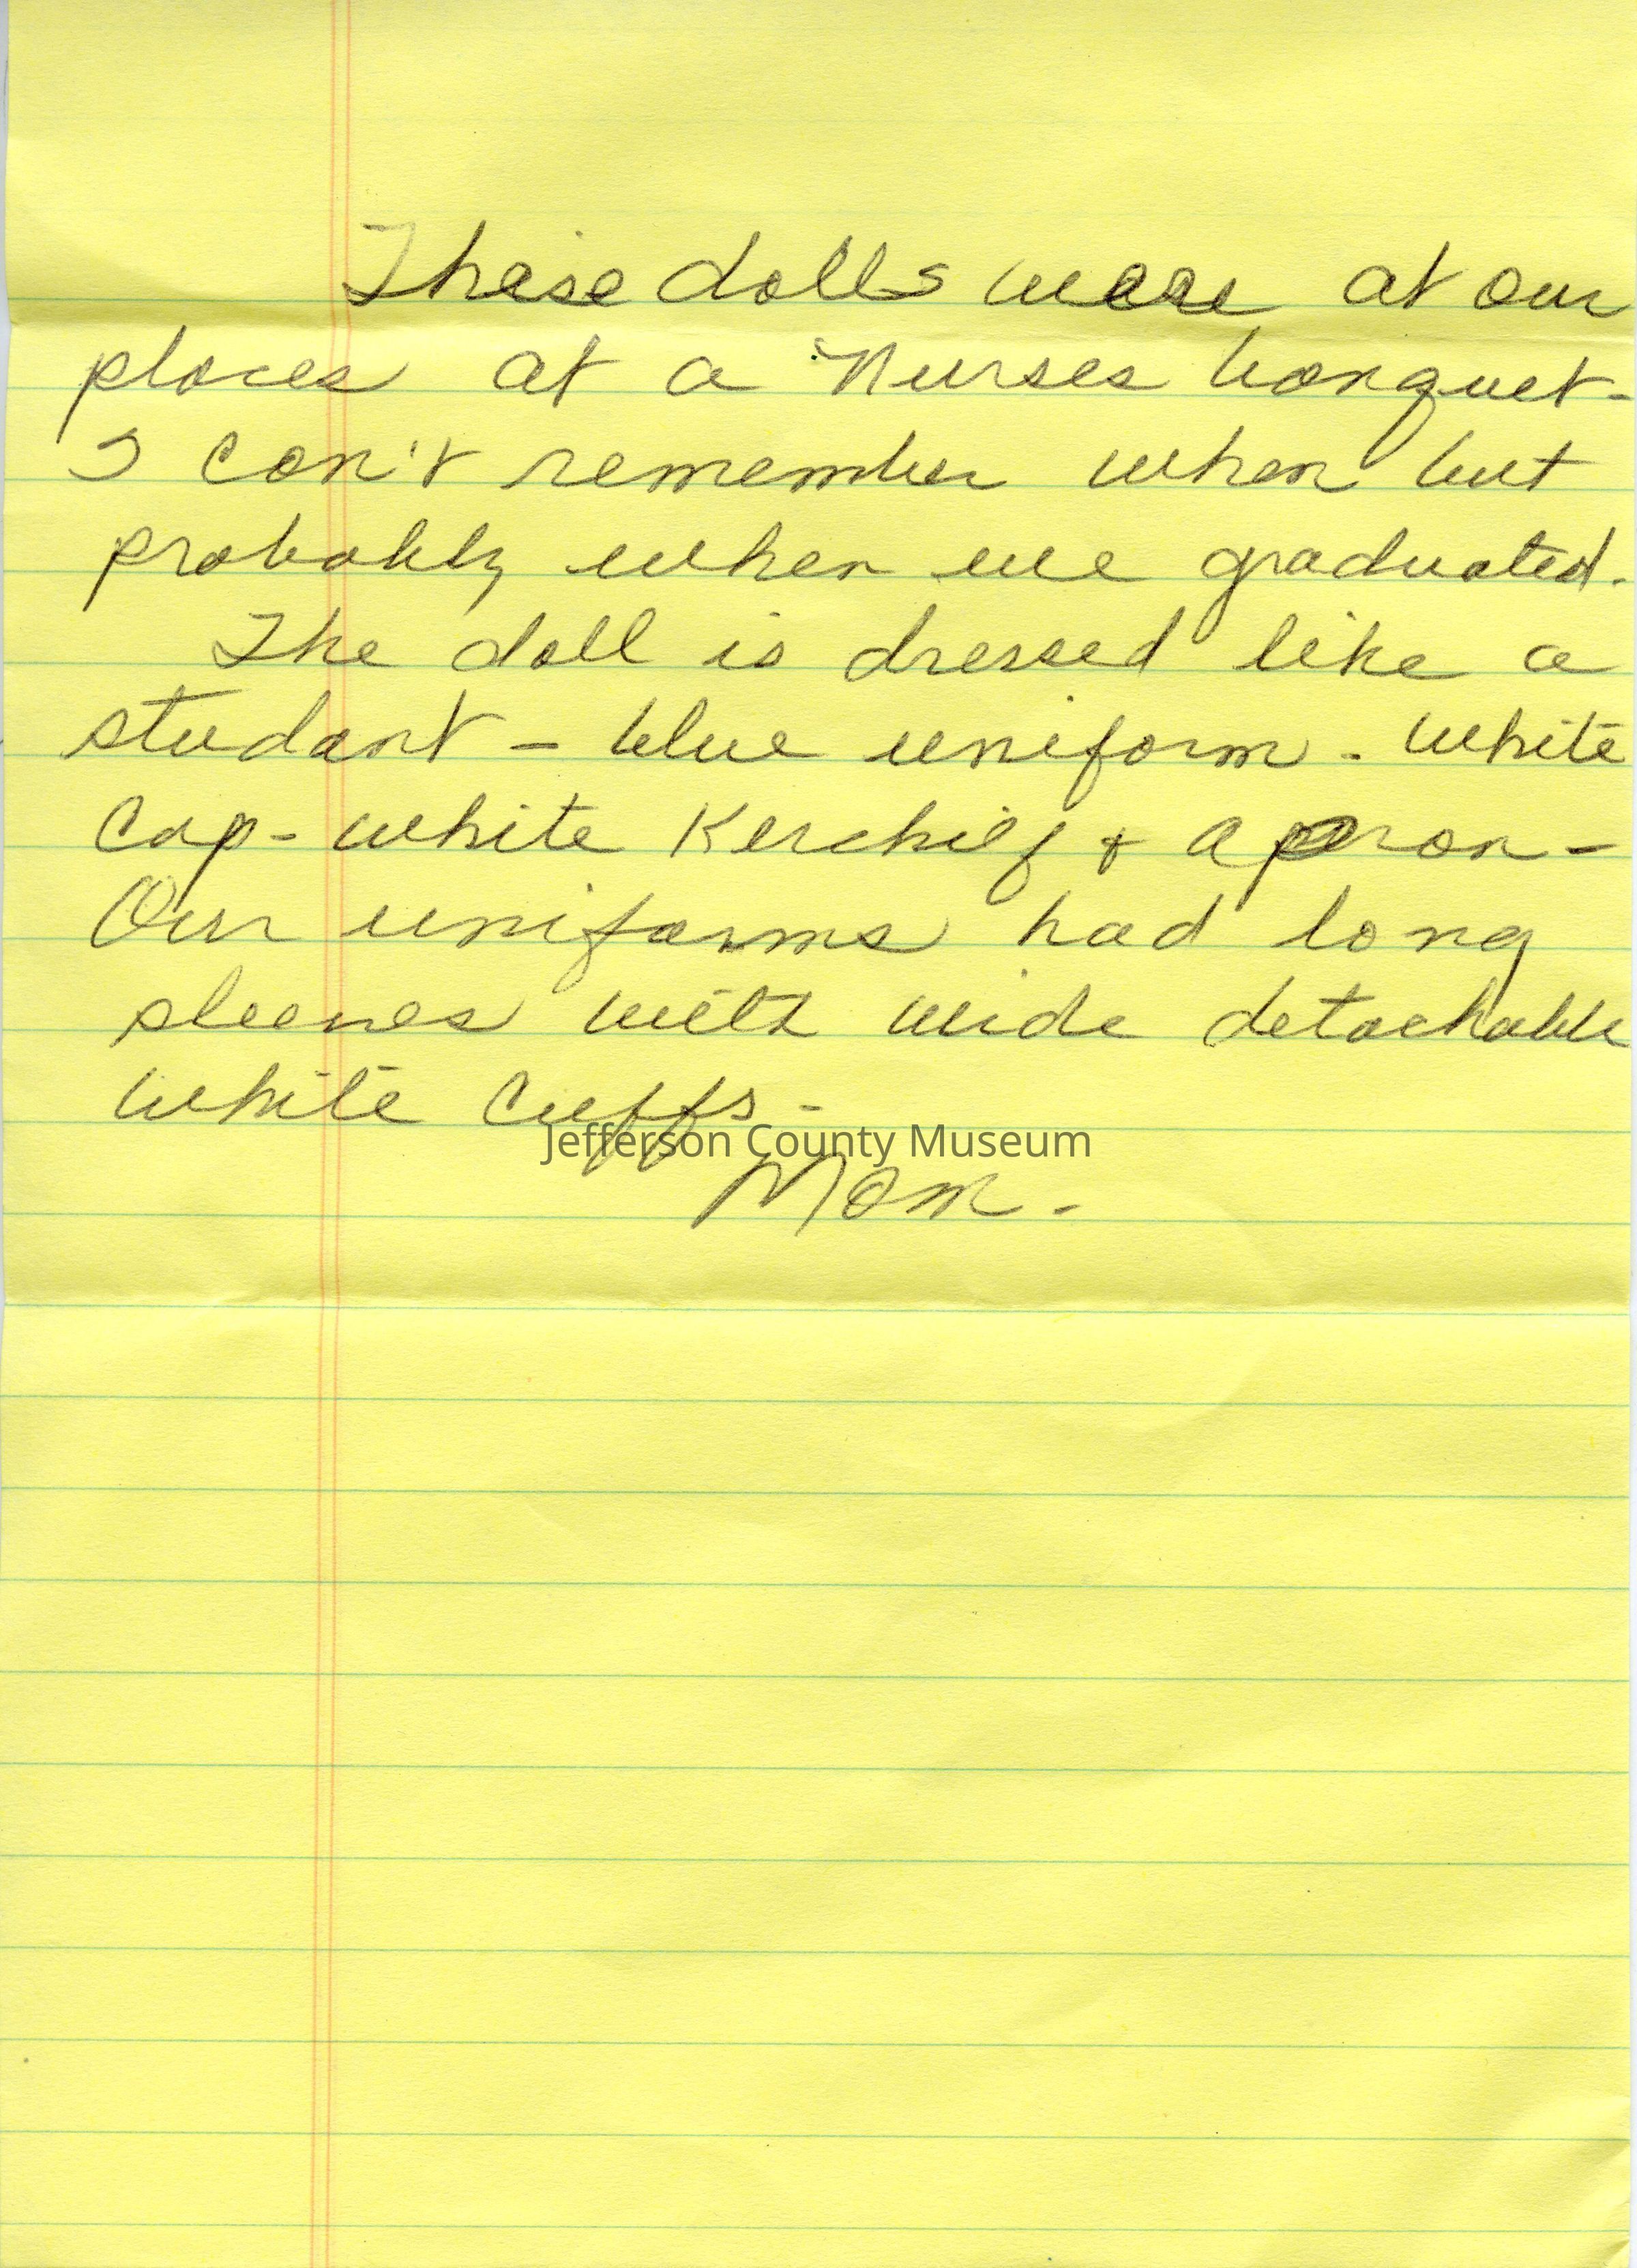 These dolls were at our
places at a Nurses banquet-
I can't remember when but
probably when we graduated.
The doll is dressed like a
student - blue uniform - white
cap - white Kerchief + apron -
Our uniforms had long
sleeves with wide detachable
white cuffs -
Jefferson County Museum
Mom -